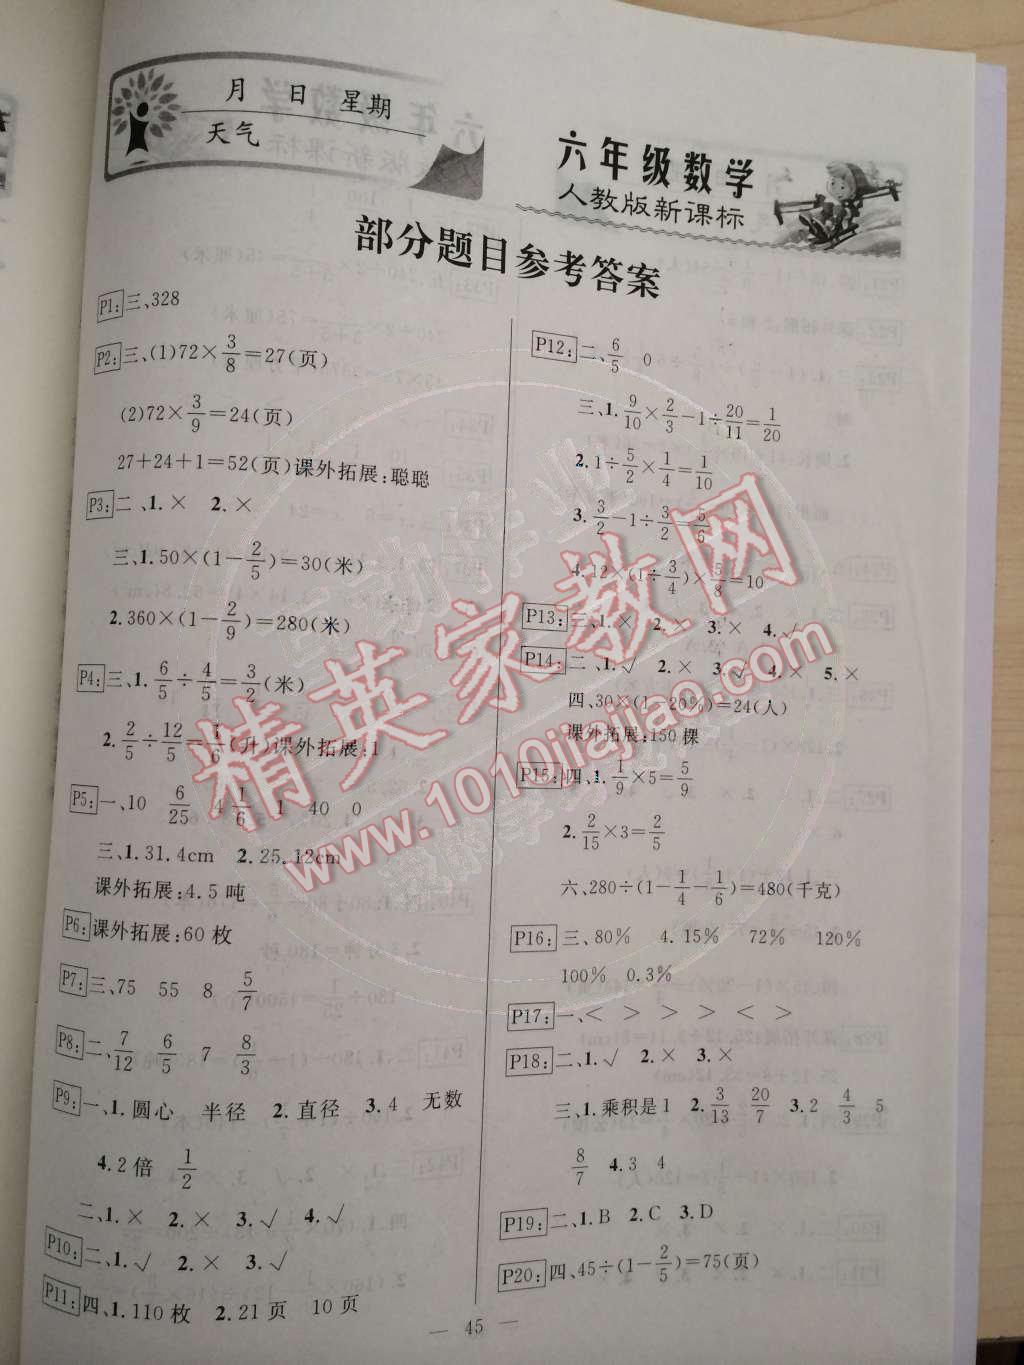 月 日 星期
天气
六年级数学
人教版新课标
部分题目参考答案
P1: 三、328
P2: 三、(1)72×3/8=27(页)
(2)72×3/9=24(页)
27+24+1=52(页)课外拓展:聪聪
P3: 二、1.× 2.×
三、1.50×(1-2/5)=30(米)
2.360×(1-2/9)=280(米)
P4: 三、1.6/5÷4/5=3/2(米)
2.2/5÷12/5=1/6(升)课外拓展:1
P5: 一、10 6/25 4 1/6 1 40 0
三、1.31.4cm 2.25.12cm
课外拓展:4.5吨
P6: 课外拓展:60枚
P7: 三、75 55 8 5/7
P8: 二、7/12 6/5 7 8/3
P9: 一、1.圆心 半径 2.直径 3.4 无数
4.2倍 1/2
二、1.× 2.× 3.√ 4.√
P10: 二、1.√ 2.× 3.√
P11: 四、1.110枚 2.21页 10页
P12: 二、6/5 0
三、1.9/10×2/3-1÷20/11=1/20
2.1÷5/2×1/4=1/10
3.3/2-1÷3/2=5/6
4.12×(1÷3/4)×5/8=10
P13: 三、1.× 2.× 3.× 4.√
P14: 二、1.√ 2.× 3.√ 4.× 5.×
四、30×(1-20%)=24(人)
课外拓展:150棵
P15: 四、1.1/9×5=5/9
2.2/15×3=2/5
六、280÷(1-1/4-1/6)=480(千克)
P16: 三、80% 4.15% 72% 120%
100% 0.3%
P17: 一、< > > < >
P18: 二、1.√ 2.× 3.×
三、1.乘积是1 2.3/13 20/7 3.2 4/3 5
8/7 4.3 4
P19: 二、1.B 2.C 3.D
P20: 四、45÷(1-2/5)=75(页)
— 45 —
精英家教网
www.1010jiajiao.com